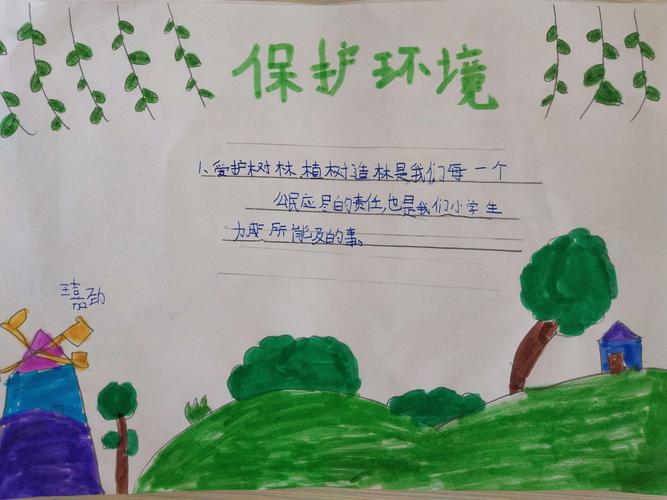 保护环境
1、爱护树林、植树造林是我们每一个
公民应尽的责任,也是我们小学生
力所能及的事。